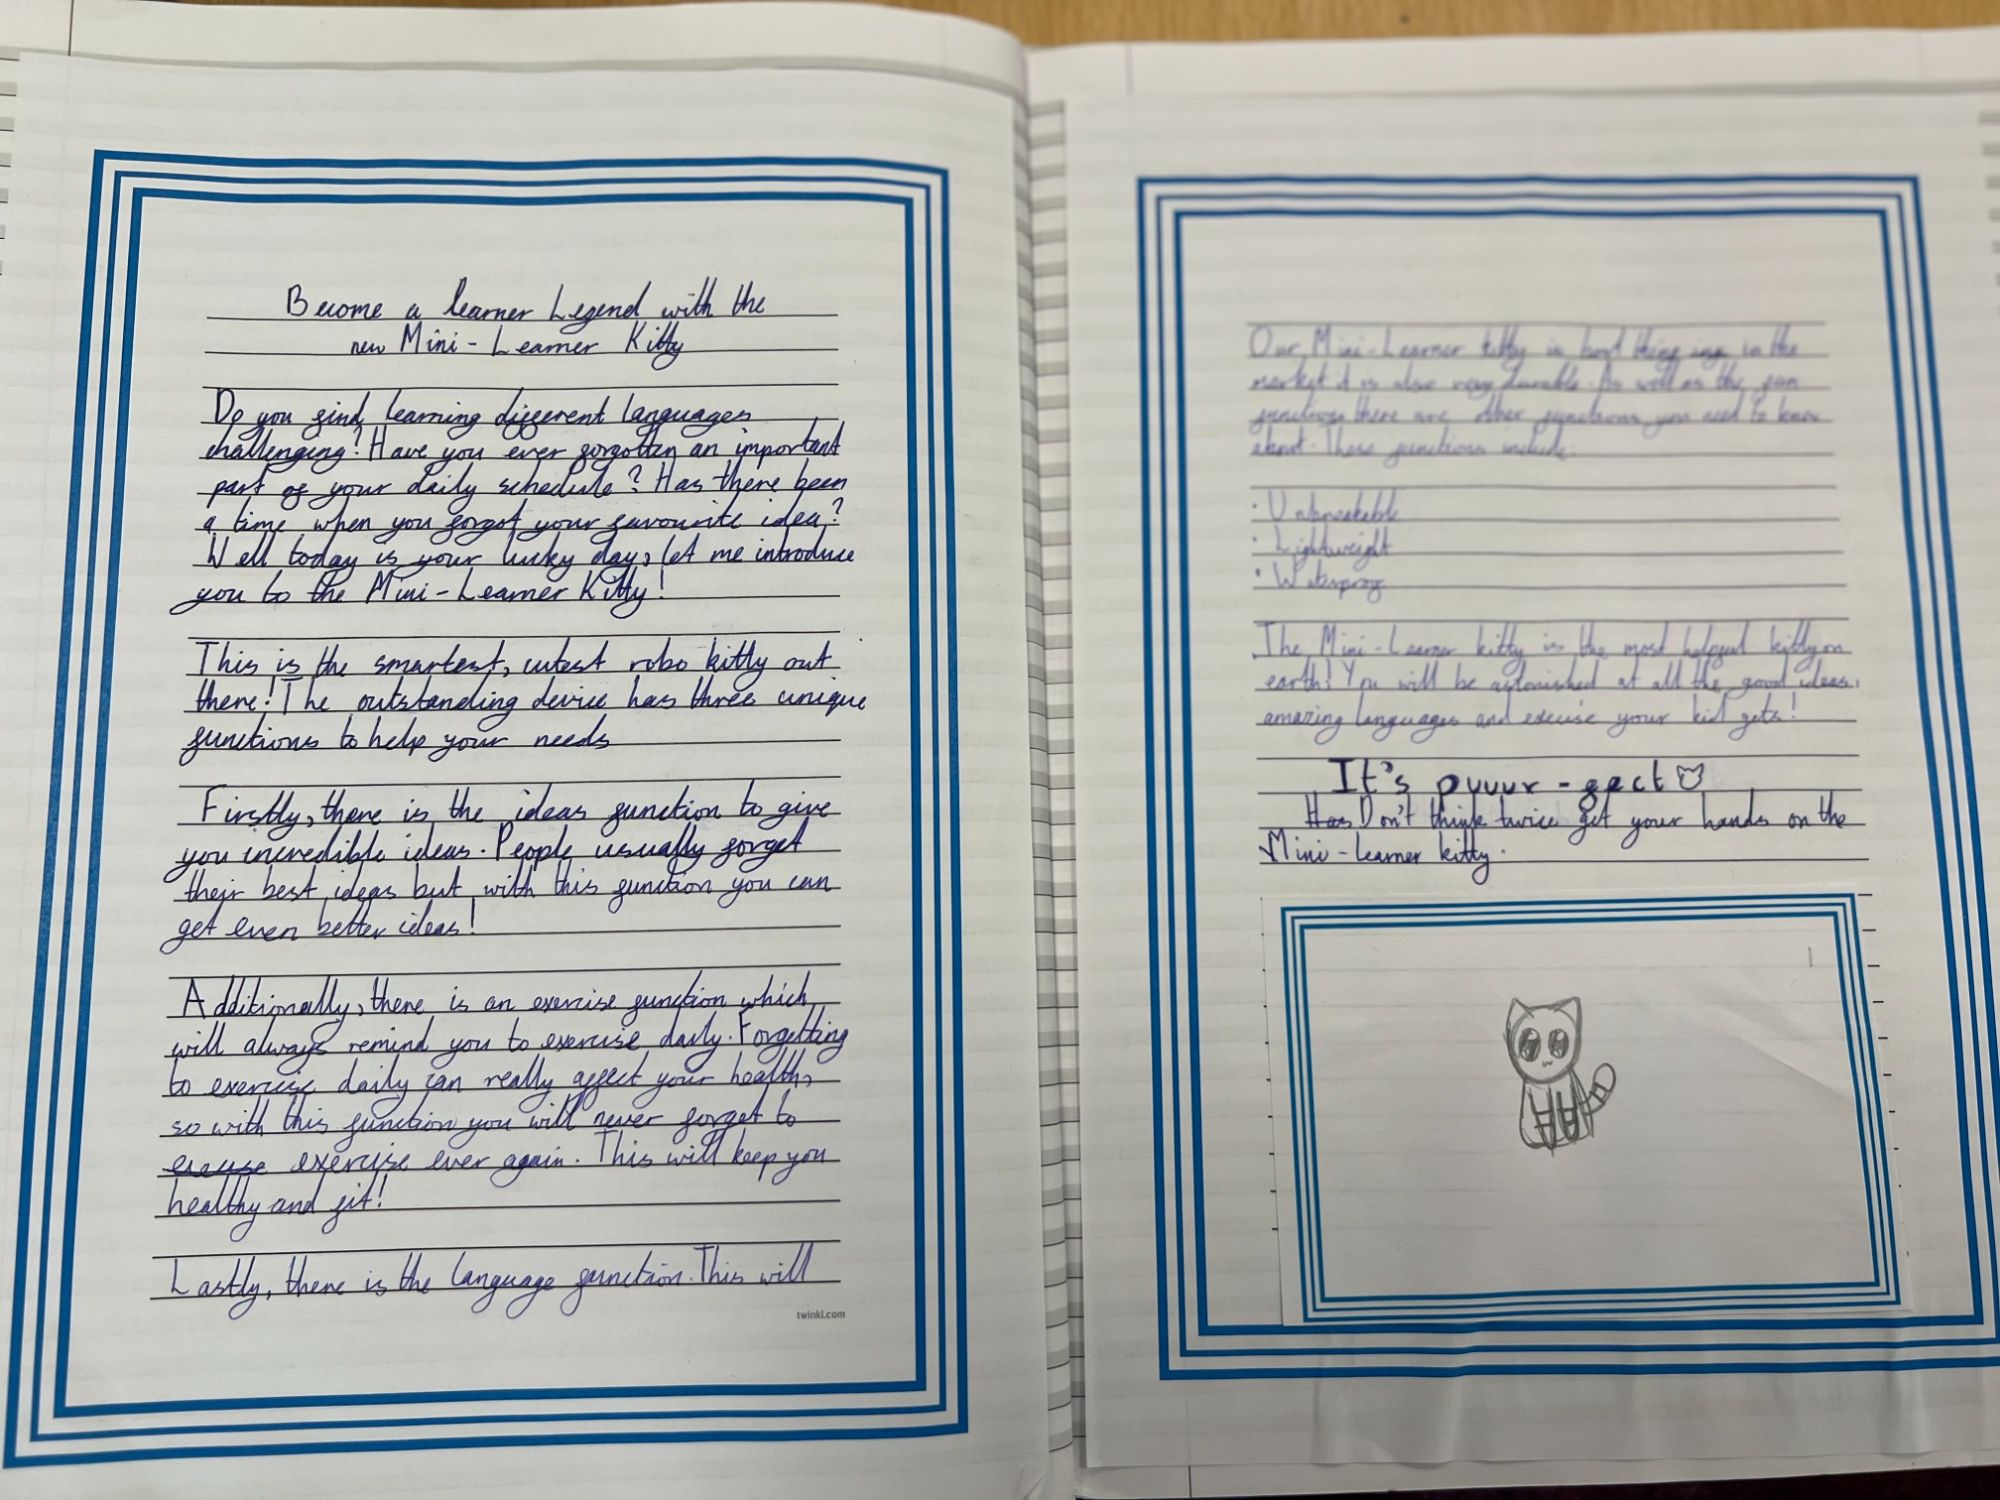 Become a learner Legend with the
new Mini-Learner Kitty
Do you find learning different languages
challenging? Have you ever forgotten an important
part of your daily schedule? Has there been
a time when you forgot your favourite idea?
Well today is your lucky day, let me introduce
you to the Mini-Learner Kitty!
This is the smartest, cutest robo kitty out
there! The outstanding device has three unique
functions to help your needs
Firstly, there is the ideas function to give
you incredible ideas. People usually forget
their best ideas but with this function you can
get even better ideas!
Additionally, there is an exercise function which
will always remind you to exercise daily. Forgetting
to exercise daily can really affect your health,
so with this function you will never forget to
exercise ever again. This will keep you
healthy and fit!
Lastly, there is the language function. This will
twinkl.com
Our Mini-Learner kitty is best thing in the
market it is also very durable. As well as the
functions there are other functions you need to know
about. These functions include:
· Unbreakable
· Lightweight
The Mini-Learner kitty is the most helpful kitty on
earth! You will be astonished at all the good ideas,
amazing languages and exercise your kid gets!
It's puuur-fect
Has Don't think twice get your hands on the
Mini-learner kitty.